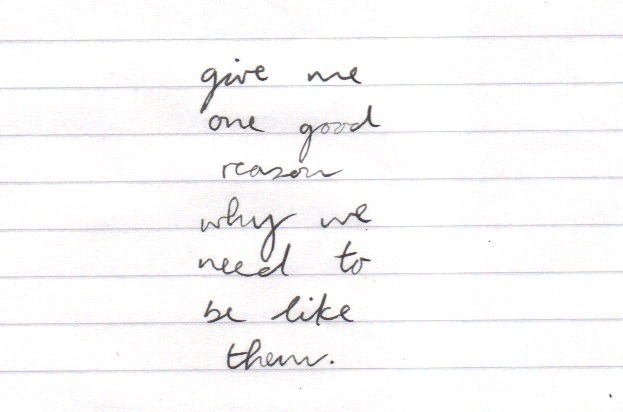 give me
one good
reason
why we
need to
be like
them.